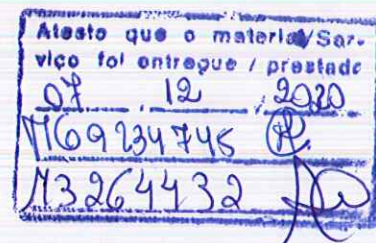 Atesto que o material/Ser-
viço foi entregue / prestado
07 12 2020
M69234745
M3264432